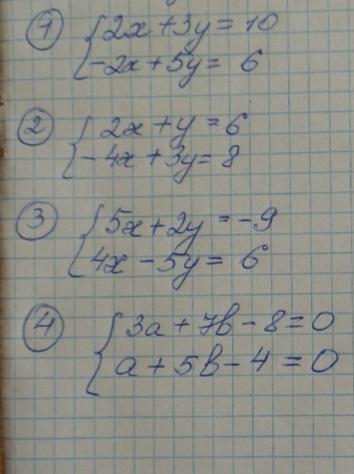 ① { 2x + 3y = 10
-2x + 5y = 6
② { 2x + y = 6
-4x + 3y = 8
③ { 5x + 2y = -9
4x - 5y = 6
④ { 3a + 7b - 8 = 0
a + 5b - 4 = 0